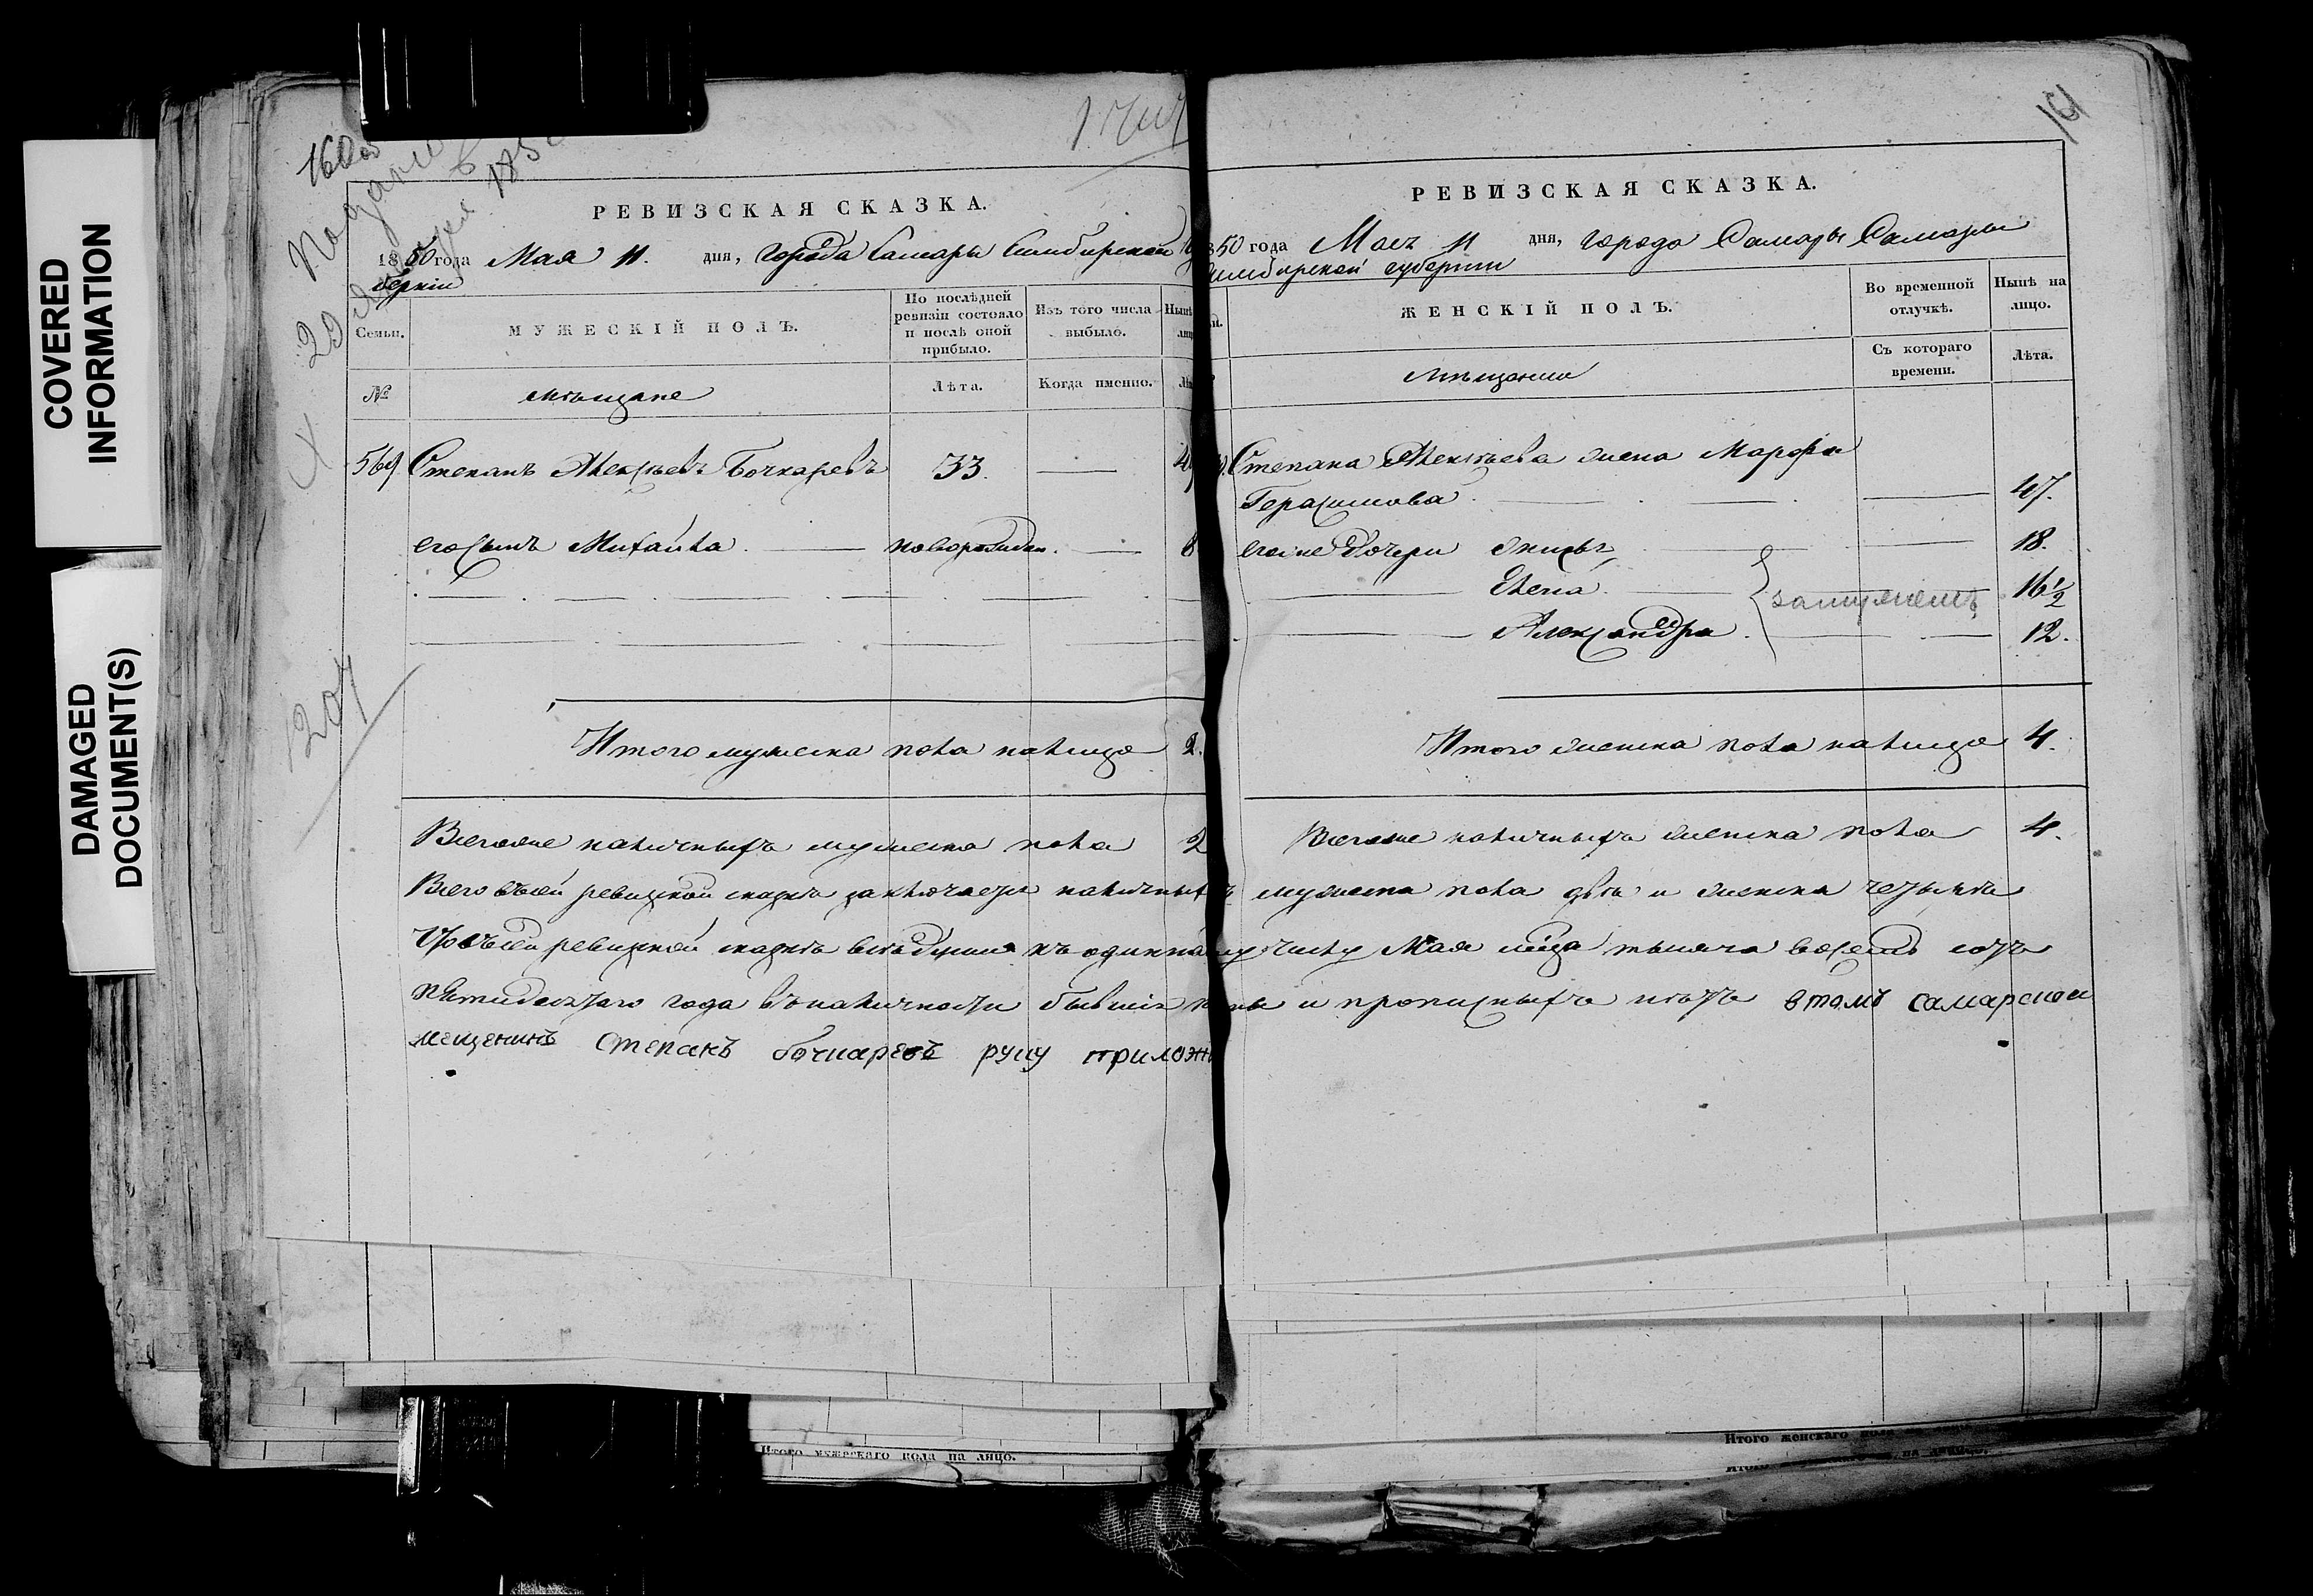 COVERED
INFORMATION
DAMAGED
DOCUMENT(S)
160об
Подана
29
1204
РЕВИЗСКАЯ СКАЗКА.
1850 года Мая 11. дня, города Самары Симбирской
берніи
Семьи.
МУЖЕСКІЙ ПОЛЪ.
По послѣдней
ревизіи состояло
и послѣ оной
прибыло.
Изъ того числа
выбыло.
№
мѣщане
Лѣта.
Когда именно.
569. Степанъ Алексѣевъ Бочкаревъ 33.
его сынъ Михайла новорожден. 8
Итого мужеска пола налицо 2.
Всего же наличныхъ мужеска пола 2
161
РЕВИЗСКАЯ СКАЗКА.
50 года Маія 11 дня, города Самары Самары
Симбирской губерніи
ЖЕНСКІЙ ПОЛЪ.
Во временной
отлучкѣ.
Нынѣ на
лицо.
мѣщанки
Съ котораго
времени.
Лѣта.
Степана Алексѣева жена Марфа
Герасимова 47.
его же дочери 18.
Елена 16 1/2
замужемъ
Александра 12.
Итого женска пола налицо 4.
Всего же наличныхъ женска пола 4.
Всего въ сей ревизской сказкѣ заключается наличныхъ мужеска пола двѣ и женска четыре
Что въ сей ревизской сказкѣ всѣ души къ одиннадцатому числу Мая мѣсяца тысяча восемь сотъ
пятидесятаго года въ наличности бывшія и прописныхъ нѣтъ в томъ самарскои
мещенинъ степанъ бочкаревъ руку приложи
Итого мужескаго пола на лицо.
Итого женскаго пола